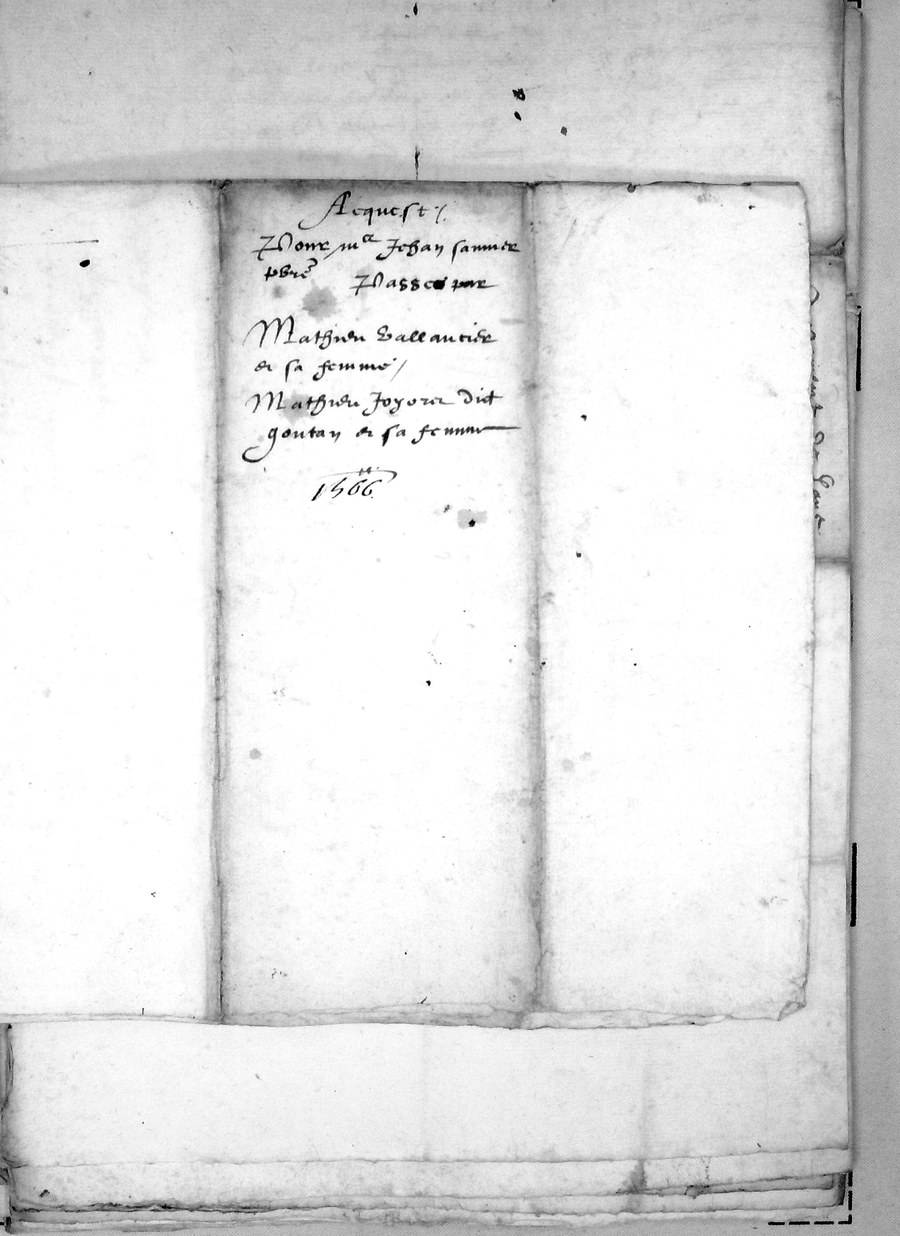 Acquest /.
Pour me Jehan saunier
pbre Passe par
Mathieu Vallantier
et sa femme /
Mathieu Joyoret dict
goutay et sa femme
1566